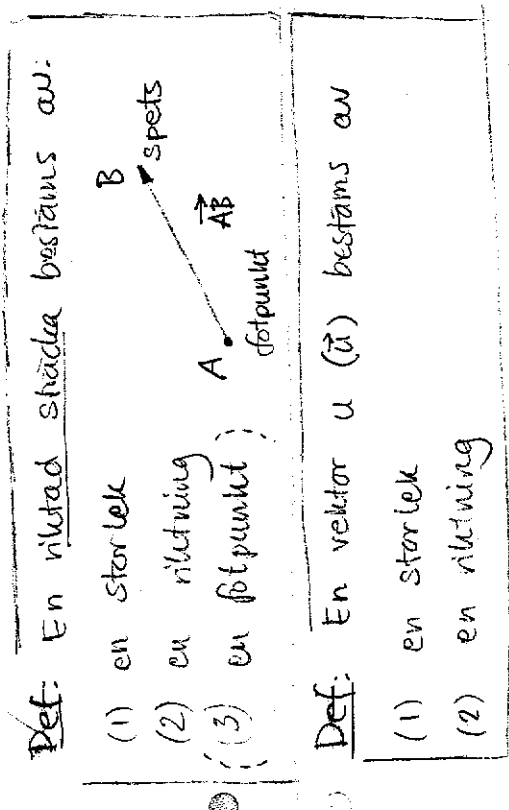 Def: En riktad sträcka bestäms av:
(1) en storlek
(2) en riktning
(3) en fotpunkt
A
fotpunkt
B
spets
\overrightarrow{AB}
Def: En vektor u (\vec{u}) bestäms av
(1) en storlek
(2) en riktning